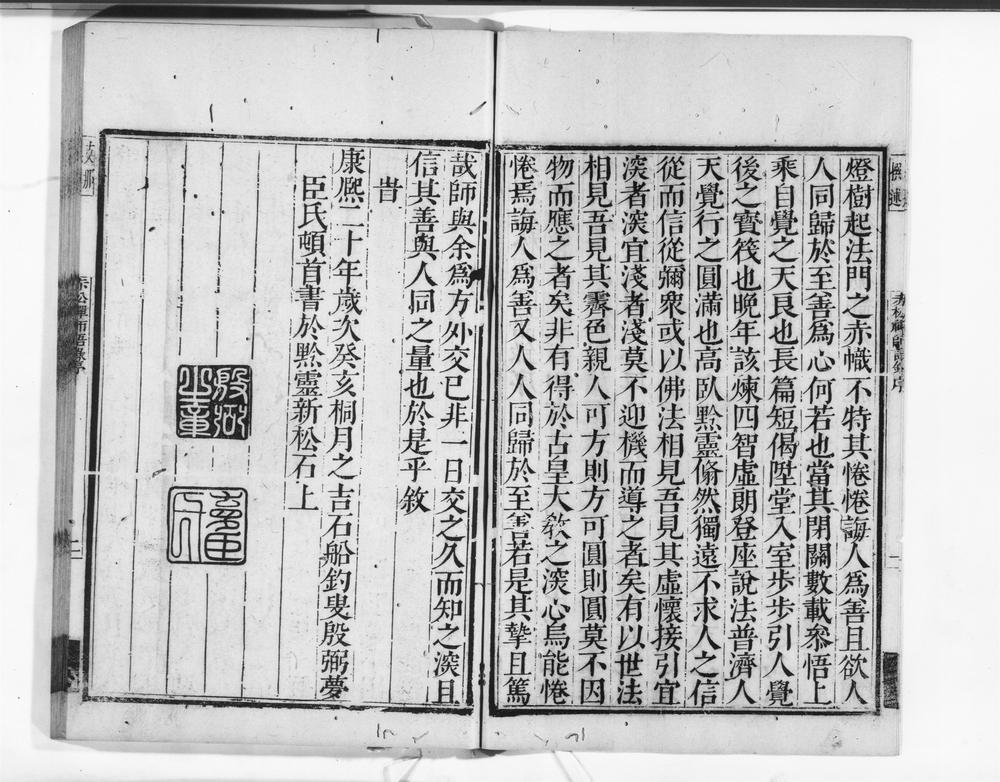 燈樹起法門之赤幟不特其惓惓誨人爲善且欲人
人同歸於至善爲心何若也當其閉關數載叅悟上
乘自覺之天良也長篇短偈陞堂入室步步引人覺
後之寶筏也晚年該煉四智虛朗登座說法普濟人
天覺行之圓滿也高臥黔靈翛然獨遠不求人之信
從而信從彌衆或以佛法相見吾見其虛懷接引宜
深者深宜淺者淺莫不迎機而導之者矣有以世法
相見吾見其霽色親人可方則方可圓則圓莫不因
物而應之者矣非有得於古皇大教之深心烏能惓
惓焉誨人爲善又人人同歸於至善若是其摯且篤
哉師與余爲方外交已非一日交之久而知之深且
信其善與人同之量也於是乎敘
旹
康熈二十年歲次癸亥桐月之吉石船釣叟殷弼夢
臣氏頓首書於黔靈新松石上
殷弼
之章
夢臣
氏